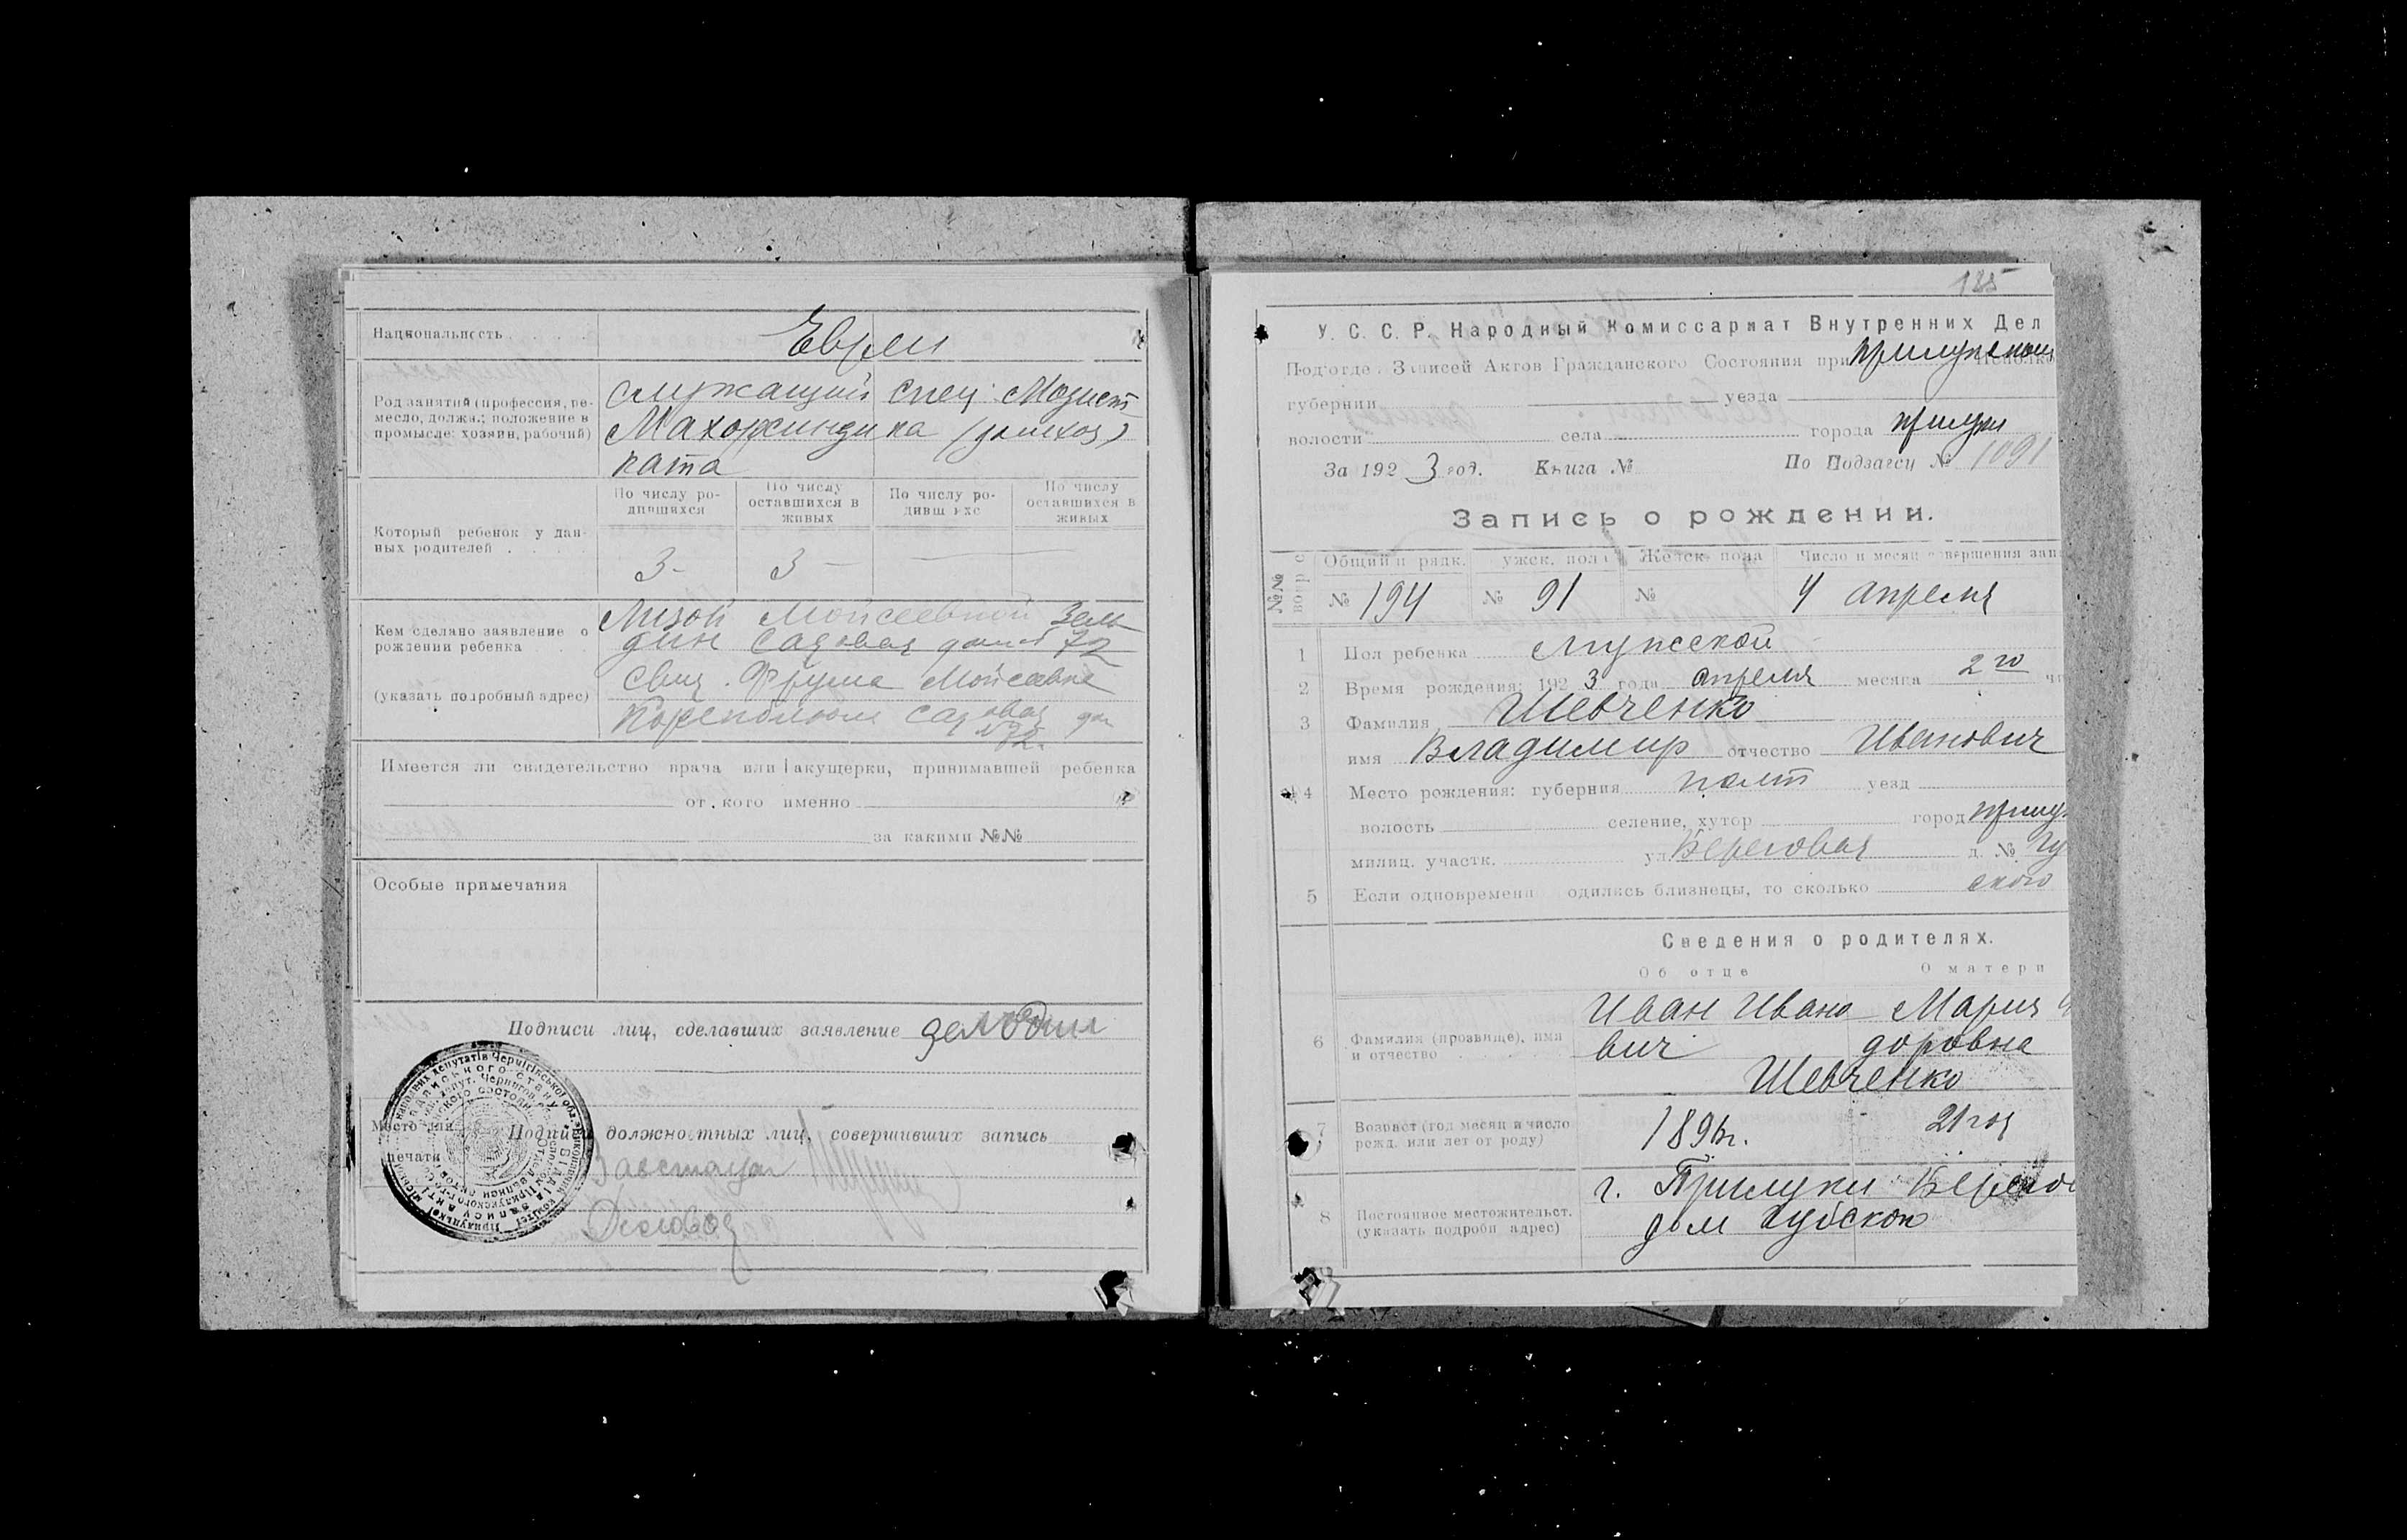 Национальность Евреи
Род занятий (профессия, ре-
месло, должн.; положение в
промысле: хозяин, рабочий)
служащий спец
Махоржиндика (домхоз)
ката
По числу ро-
дившихся
По числу
оставшихся в
живых
По числу ро-
дивш ихс
По числу
оставшихся в
живых
Который ребенок у дан-
ных родителей
3- 3-
Кем сделано заявление о
рождении ребенка
(указать подробный адрес)
Лизой Мойсеевной Зель
дин Садовая дом № 72
Свид. Фрума Мойсеевна
Садовая дом
№ 72.
Имеется ли свидетельство врача или акушерки, принимавшей ребенка
от кого именно
за какими №№
Особые примечания
Подписи лиц, сделавших заявление
Место для
печати
Подписи должностных лиц, совершивших запись
Завстолом
Деловод
185
У. С. С. Р. Народный Комиссариат Внутренних Дел
Подотдел Записей Актов Гражданского Состояния при Прилукском Исполко
губернии уезда
волости села города Прилуки
За 1923 год. Книга № По Подзагсу № 1091
Запись о рождении.
№№
вопрос
Общий п рядк. ужск. пола Женск. пола Число и месяц совершения зап
№ 194 № 91 № 4 апреля
1 Пол ребенка мужской
2 Время рождения: 1923 года апреля месяца 2го чи
3 Фамилия Шевченко
имя Владимир отчество Иванович
4 Место рождения: губерния Полт уезд
волость селение, хутор город Прилу
милиц. участк. ул Береговая д. № Гу
ского
5 Если одновремени одились близнецы, то сколько
Сведения о родителях.
Об отце О матери
6 Фамилия (прозвище), имя
и отчество
Иван Ивано
вич
Мария
доровна
Шевченко
7 Возраст (год месяц и число
рожд. или лет от роду)
21 год
8 Постоянное местожительст.
(указать подробн адрес)
г. Прилуки Берегов
дом